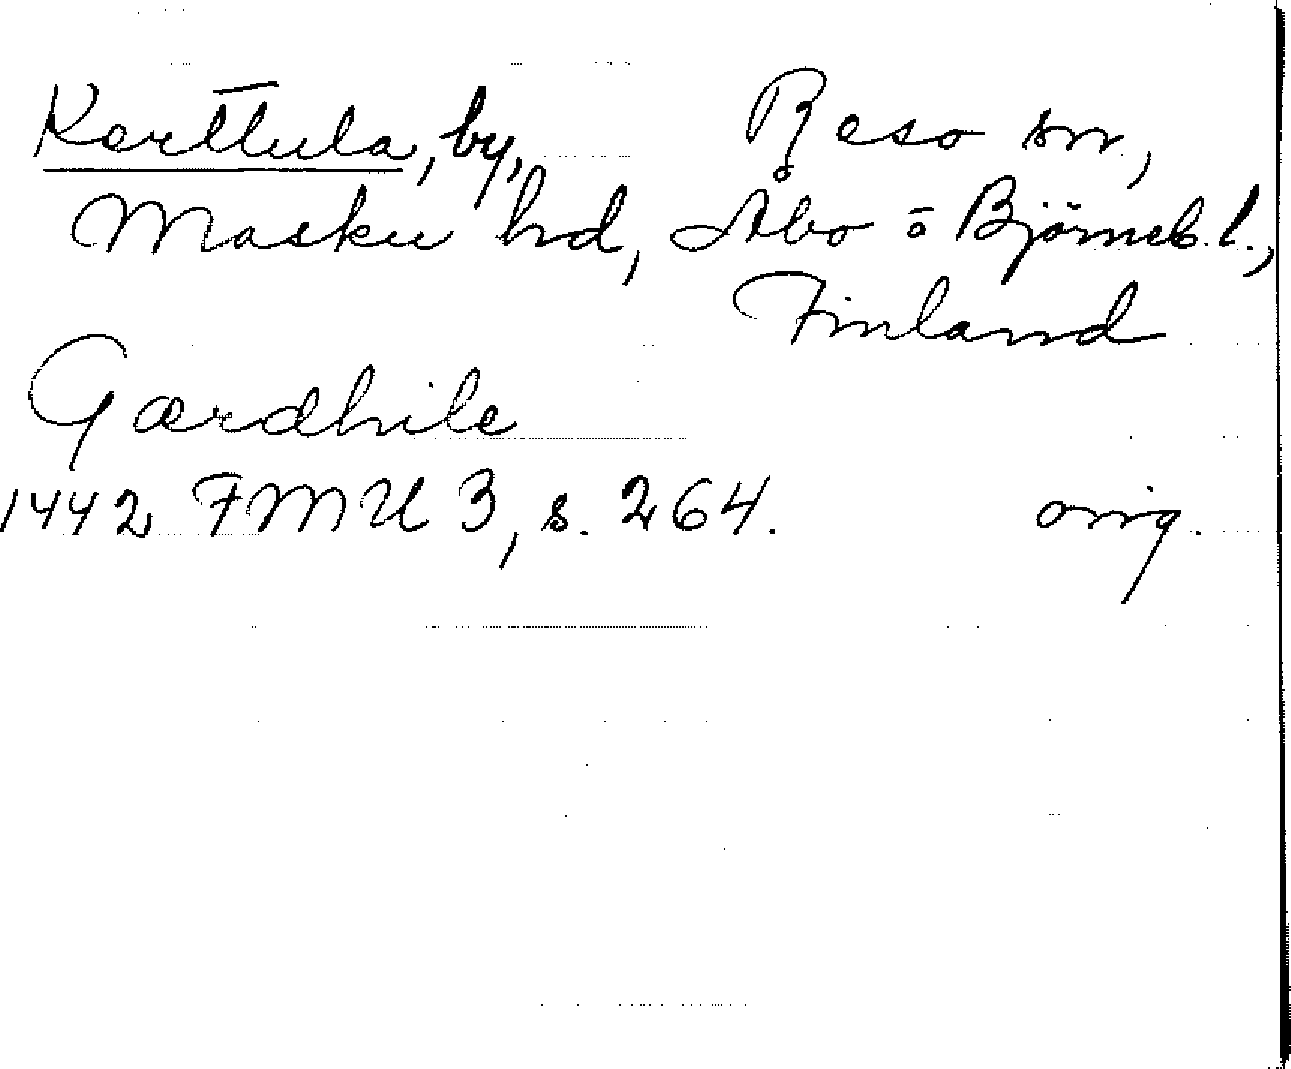 Karttula, by, Reso sn.,
Masku hd, Åbo o Björneb. l.,
Finland
Gardhile
1442 FMU 3, s. 264. orig.